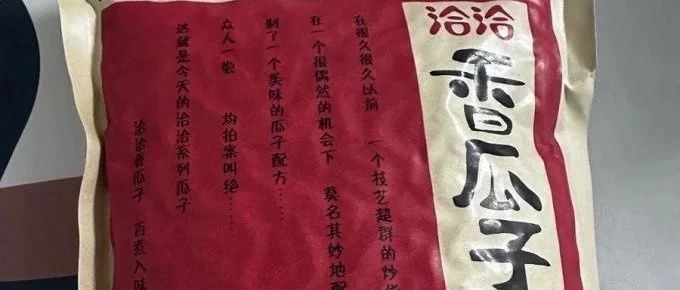 洽洽
香瓜子
在很久很久以前 一个技艺超群的炒
在一个很偶然的机会下 莫名其妙地配
制了一个美味的瓜子配方……
众人一尝 均拍案叫绝……
这就是今天的洽洽系列瓜子
洽洽香瓜子 百煮入味